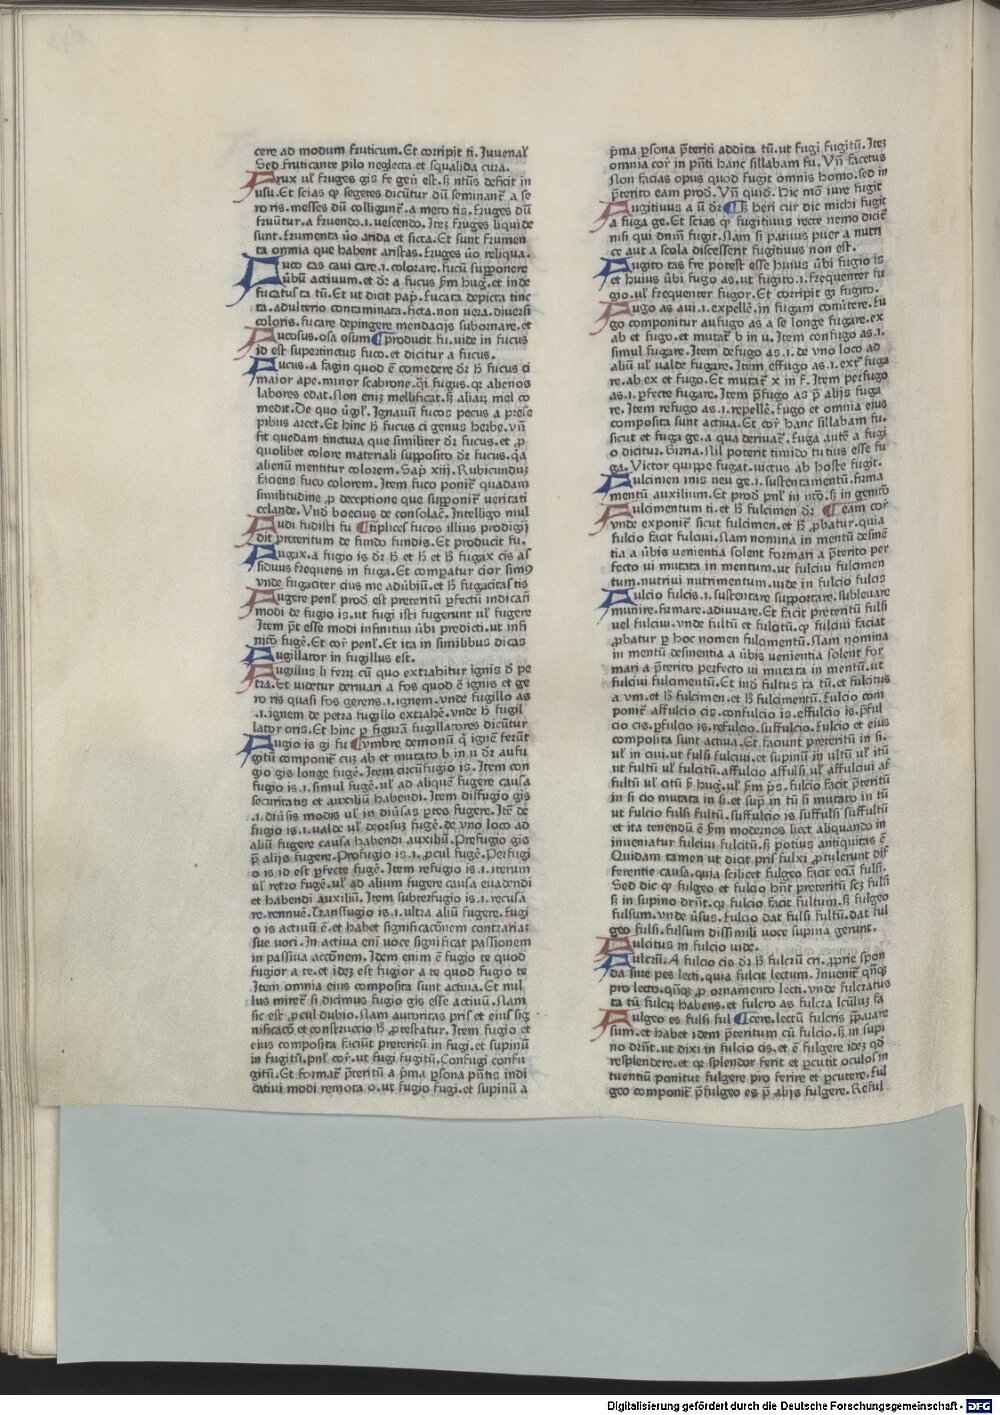 cere ad modum fruticum. Et corripit ti. Iuuenal̛
Sed fruticante pilo neglecta et squalida cura.
Frux ul̛ fruges gis fe gen̄ est. sꝫ nt̄us deficit in
usu. Et scias qͥ segetes dicūtur dū seminant᷑ a se
ro ris. messes dū colligunt᷑. a meto tis. fruges dū
fruūtur. a fruendo .i. uescendo. Itēz fruges liquide
sunt. frumenta u̇o arida et sicca. Et sunt frumen
ta omnia que habent aristas. fruges u̇o reliqua.
Fuco cas caui care .i. colorare. fucū supponere
u̇bū actiuum. et dr̄ a fucus s̄m hug̛. et inde
fucatus ta tū. Et ut dicit pap̛. fucata depicta tinc
ta. adulterio contaminata. ficta. non uera. diuersi
coloris. fucare depingere mendacijs subornare. et
Fucosus. osa osum ¶ producit fu. uide in fucus
id est supertinctus fuco. et dicitur a fucus.
Fucus. a fagin quod ē comedere dr̄ h̄ fucus ci
maior ape. minor scabrone. q̄i fugus. qr alienos
labores edat. Non enīz mellificat. sꝫ aliaꝝ mel co
medit. De quo u̇gl̛. Ignauū fucos pecus a prese
pibus arcet. Et hinc h̄ fucus ci genus herbe. vn̄
fit quedam tinctura que similiter dr̄ fucus. et ꝓ
quolibet colore materiali supposito dr̄ fucus. q̄a
alienū mentitur colorem. Sap̛ xiij. Rubicunduz
faciens fuco colorem. Item fuco ponit᷑ quadam
similitudine ꝓ deceptione que supponit᷑ ueritati
celande. Vnd̄ boecius de consolac̄. Intelligo mul
Fudi fudisti fu ¶ tiplices fucos illius prodigij
dit preteritum de fundo fundis. Et producit fu.
Fugax. a fugio is dr̄ h̄ et h̄ et h̄ fugax cis as
siduus frequens in fuga. Et compatur cior simꝯ
vnde fugaciter cius me adu̇biū. et h̄ fugacitas tis
Fugere penl̛ prod̄ est preteritū ꝑfectū indicati
modi de fugio is. ut fugi isti fugerunt ul̛ fugere
Item p̄t esse modi infinitiui u̇bi predicti. ut infi
nit̄o fugē. Et cor̄ penl̛. Et ita in similibus dicas
Fugillator in fugillus est.
Fugillus li ferr̄ cū quo extrahitur ignis d̄ pe
tra. Et uidetur deriuari a fos quod ē ignis et ge
ro ris quasi fos gerens .i. ignem. vnde fugillo as
.i. ignem de petra fugillo extrahē. vnde h̄ fugil
lator oris. Et hinc ꝑ figurā fugillatores dicūtur
Fugio is gi fu ¶ vmbre demonū q̄ ignē ferūt
gitū componit᷑ cuz ab et mutato b in u dr̄ aufu
gio gis longe fugē. Item circūfugio is. Item con
fugio is .i. simul fugē. ul̛ ad aliquē fugere causa
securitatis et auxiliū habendi. Item diffugio gis
.i. diu̇sis modis ul̛ in diu̇sas ꝑtes fugere. Itē de
fugio is .i. ualde ul̛ deorsuz fugē. de vno loco ad
aliū fugere causa habendi auxiliū. Prefugio gis
p̄ alijs fugere. Profugio is .i. ꝓcul fugē. Perfugi
o is id est ꝑfecte fugē. Item refugio is .i. iterum
ul̛ retro fugē. ul̛ ad alium fugere causa euadendi
et habendi auxiliū. Item subterfugio is .i. recusa
re. rennuē. Transfugio is .i. ultra aliū fugere. fugi
o is actiuū ē. et habet significac̄onem contrariaz
sue uoci. In actiua eni uoce significat passionem
in passiua acc̄onem. Idem enim ē fugio te quod
fugior a te. et idez est fugior a te quod fugio te
Item omnia eius composita sunt actiua. Et nul
lus miret᷑ si dicimus fugio gis esse actiuū. Nam
sic est ꝓcul dubio. Nam autoritas pris̄ et eius sig
nificac̄o et constructio h̄ ꝓtestatur. Item fugio et
eius composita faciūt preteritū in fugi. et supinū
in fugitū. pnl̛ cor̄. ut fugi fugitū. Confugi confu
gitū. Et format᷑ p̄teritū a p̄ma ꝑsona pn̄tis indi
catiui modi remota o. ut fugio fugi. et supinū a
p̄ma ꝑsona p̄teriti addita tū. ut fugi fugitū. Itez
omnia cor̄ in pn̄ti hanc sillabam fu. Vn̄ facetus
Non facias opus quod fugit omnis homo. sed in
p̄terito eam prod̄. Vn̄ quid̄. Hic mō iure fugit
Fugitiuus a ū dr̄ ¶ sꝫ heri cur dic michi fugit
a fuga ge. Et scias qͥ fugitiuus recte nemo dicit᷑
nisi qui dnm̄ fugit. Nam si paruus puer a nutri
ce aut a scola discesserit fugitiuus non est.
Fugito tas fre potest esse huius u̇bi fugio is
et huius u̇bi fugo as. ut fugito .i. frequenter fu
gio. ul̛ frequenter fugor. Et corripit gi fugito.
Fugo as aui .i. expellē. in fugam conūtere. fu
go componitur aufugo as a se longe fugare. ex
ab et fugo. et mutat᷑ b in u. Item confugo as .i.
simul fugare. Item defugo as .i. de vno loco ad
aliū ul̛ ualde fugare. Item effugo as .i. extͣ fuga
re. ab ex et fugo. Et mutat᷑ x in f. Item perfugo
as .i. ꝑfecte fugare. Item p̄fugo as p̄ alijs fuga
re. Item refugo as .i. repellē. fugo et omnia eius
composita sunt actiua. Et cor̄ hanc sillabam fu.
sicut et fuga ge. a qua deriuat᷑. fuga autē a fugi
o dicitur. Birria. Nil poterit timido tutius esse fu
ga. Victor quippe fugat. uictus ab hoste fugit.
Fulcimen inis neu ge .i. sustentamentū. firma
mentū auxilium. Et prod̄ pnl̛ in nt̄o. sꝫ in genit̄o
Fulcimentum ti. et h̄ fulcimen dr̄ ¶ eam cor̄
vnde exponit᷑ sicut fulcimen. et h̄ ꝓbatur. quia
fulcio facit fulciui. Nam nomina in mentū desinē
tia a u̇bis uenientia solent formari a p̄terito per
fecto ui mutata in mentum. ut fulciui fulcimen
tum. nutriui nutrimentum. uide in fulcio fulcis
Fulcio fulcis .i. sustentare supportare. subleuare
munire. firmare. adiuuare. Et facit preteritū fulsi
uel fulciui. vnde fultū et fulcitū. qͥ fulciui faciat
ꝓbatur ꝑ hoc nomen fulcimentū. Nam nomina
in mentū desinentia a u̇bis uenientia solent for
mari a p̄terito perfecto ui mutata in mentū. ut
fulciui fulcimentū. Et ind̄ fultus ta tū. et fulcitus
a vm. et h̄ fulcimen. et h̄ fulcimentū. fulcio com
ponit᷑ affulcio cis. confulcio is. effulcio is. p̄ful
cio cis. ꝑfulcio is. refulcio. suffulcio. fulcio et eius
composita sunt actiua. Et faciunt preteritū in si.
ul̛ in ciui. ut fulsi fulciui. et supinū in ultū ul̛ itū
ut fultū ul̛ fulcitū. affulcio affulsi ul̛ affulciui af
fultū ul̛ citū s̄m hug̛. ul̛ s̄m p̄s. fulcio facit p̄teritū
in si cio mutata in si. et sup̛ in tū si mutato in tū
ut fulcio fulsi fultū. suffulcio is suffulsi suffultū
et ita tenendū ē s̄m modernos licet aliquando in
inueniatur fulciui fulcitū. sꝫ potius antiquitas ē
Quidam tamen ut dicit pris̄ fulxi ꝓtulerunt dif
ferentie causa. quia scilicet fulgeo facit eciā fulsi.
Sed dic qͥ fulgeo et fulcio hn̄t preteritū scz fulsi
sꝫ in supino drn̄t. qr fulcio facit fultum. sꝫ fulgeo
fulsum. vnde u̇sus. fulcio dat fulsi fultū. dat ful
geo fulsi. fulsum dissimili uoce supina gerunt.
Fulcitus in fulcio uide.
Fulcrū. A fulcio cis dr̄ h̄ fulcrū cri. ꝓprie spon
da siue pes lecti. quia fulcit lectum. Inuenit᷑ qn̄qꝫ
pro lecto. qn̄qꝫ ꝓ ornamento lecti. vnde fulcratus
ta tū fulcꝝ habens. et fulcro as fulcra lculuz fa
Fulgeo es fulsi ful ¶ cere. lectū fulcris ꝑparare
sum. et habet idem p̄teritum cū fulcio. sꝫ in supi
no drn̄t. ut dixi in fulcio cis. et ē fulgere idez qd̄
resplendere. et qr splendor ferit et ꝑcutit oculos in
tuentiū ponitur fulgere pro ferire et ꝑcutere. ful
geo componit᷑ p̄fulgeo es p̄ alijs fulgere. Reful
Digitalisierung gefördert durch die Deutsche Forschungsgemeinschaft - DFG